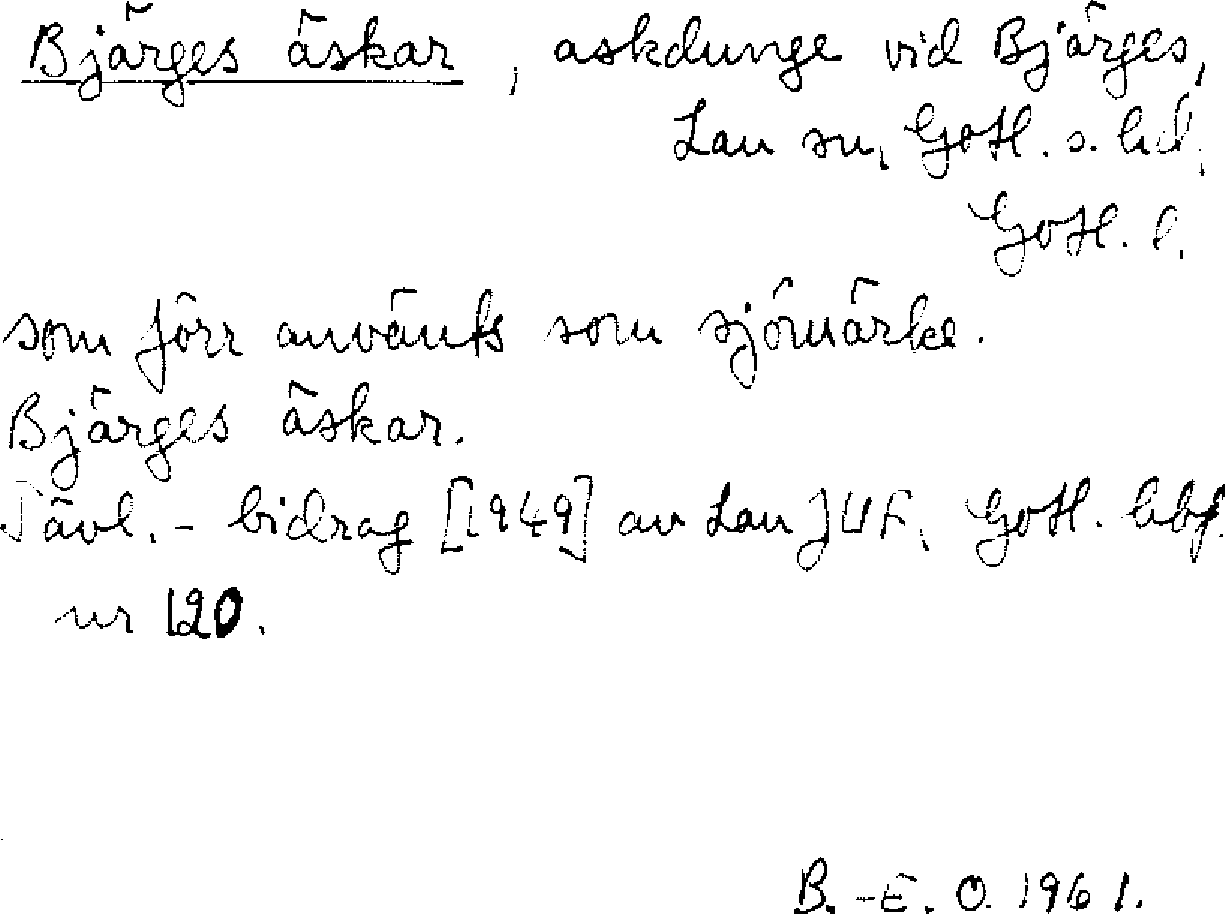 Bjärges äskar, askdunge vid Bjärges,
Lau sn, Gotl. s. hd,
Gotl. l.
som förr använts som sjömärke.
Bjärges äskar.
Tävl.-bidrag [1949] av Lau JUF, Gotl. hbf.
nr 120.
B.-E. O. 1961.